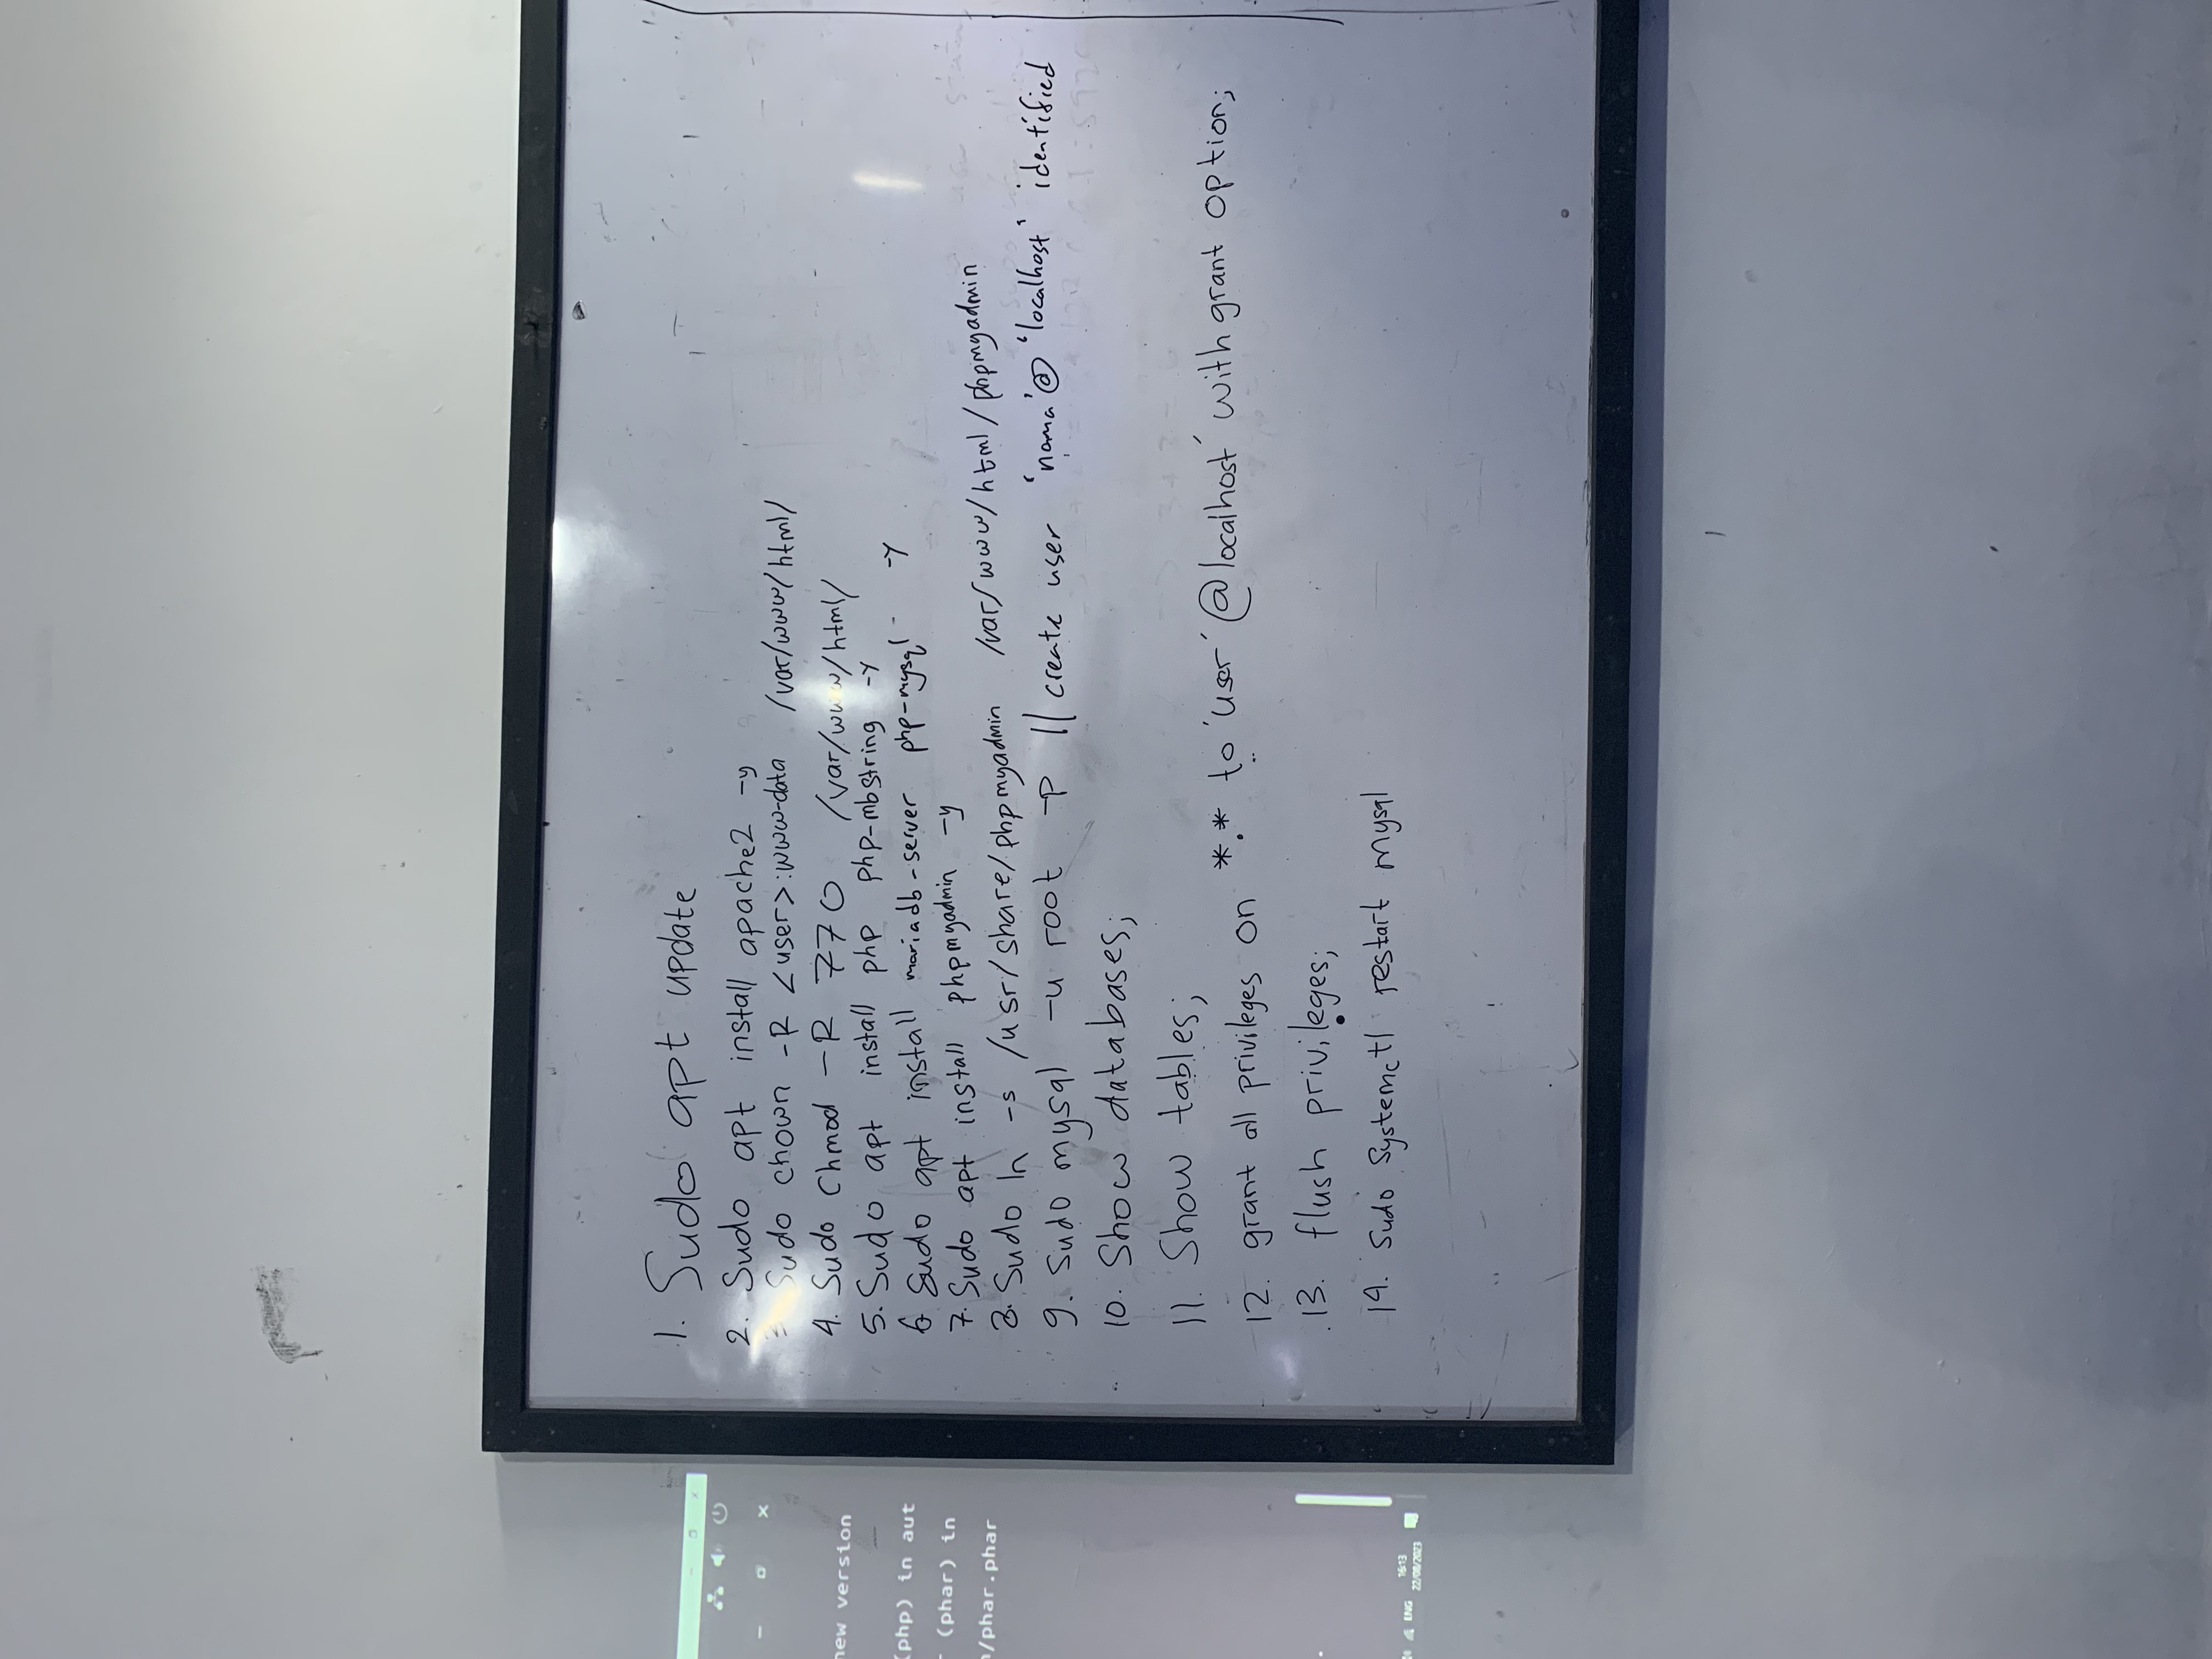 new version
(php) in aut
(phar) in
/phar.phar
ENG
16:13
22/08/2023
1. Sudo apt update
2. Sudo apt install apache2 -y
3 Sudo chown -R <user>:www-data /var/www/html/
4. Sudo Chmod -R 770 /var/www/html/
5. Sudo apt install php php-mbstring -Y
6 Sudo apt install mariadb-server php-mysql -Y
7. Sudo apt install phpmyadmin -y
8. Sudo ln -s /usr/share/phpmyadmin /var/www/html/phpmyadmin
9. Sudo mysql -u root -P || create user 'nama'@'localhost' identified
10. Show databases;
11. Show tables;
12. grant all privileges on *.* to 'user'@localhost' with grant option;
13. flush privileges;
14. Sudo Systemctl restart mysql